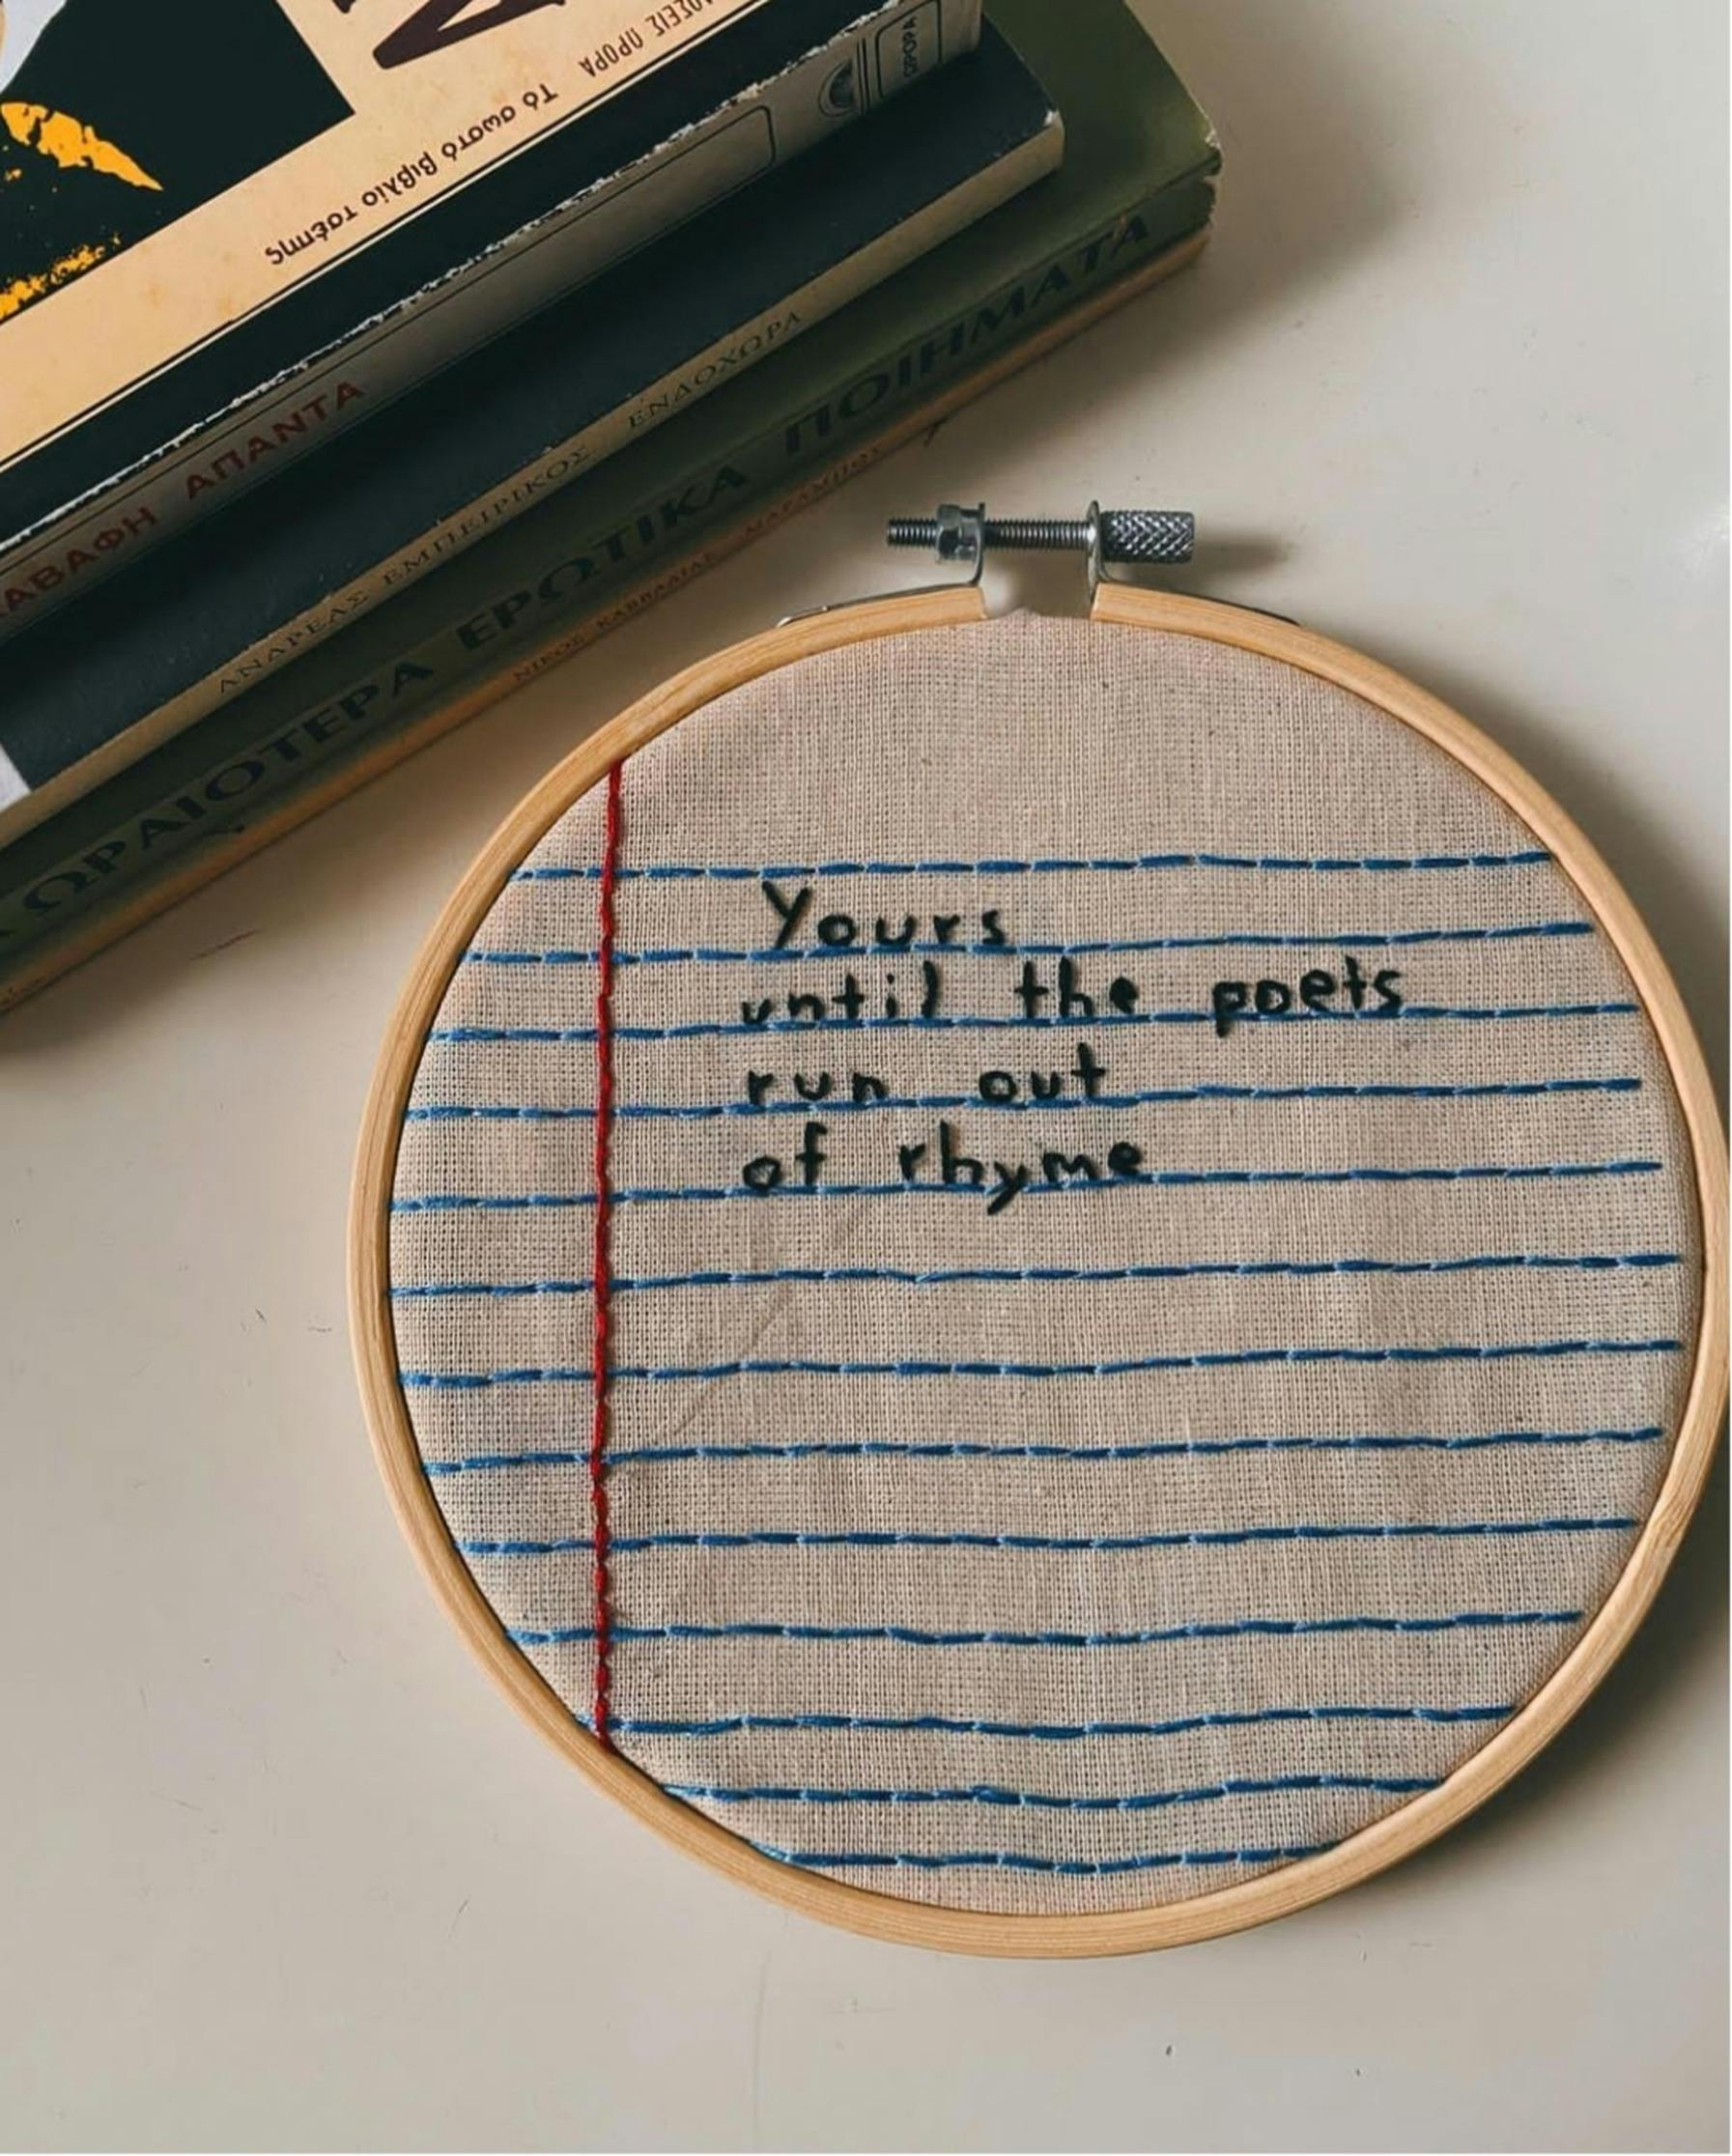 ΔΟΣΕΙΣ ΩΡΟΡΑ
Τό σωστό βιβλίο τσέπης
ΩΡΟΡΑ
ΑΒΑΦΗ ΑΠΑΝΤΑ
ΑΝΔΡΕΑΣ ΕΜΠΕΙΡΙΚΟΣ ΕΝΔΟΧΩΡΑ
ΩΡΑΙΟΤΕΡΑ ΕΡΩΤΙΚΑ ΠΟΙΗΜΑΤΑ
ΝΙΚΟΣ ΚΑΒΒΑΔΙΑΣ ΜΑΡΑΜΠΟΥ
Yours
until the poets
run out
of rhyme